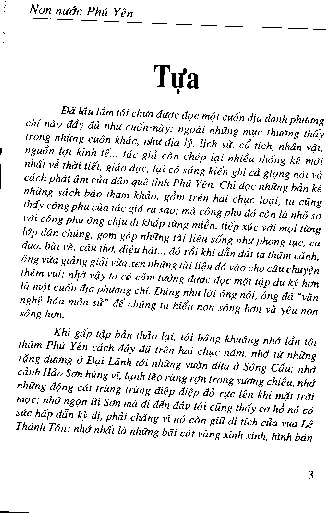 Non nước Phú Yên
Tựa
Đã lâu lắm tôi chưa được đọc một cuốn địa danh phương
chí nào đầy đủ như cuốn này: ngoài những mục thường thấy
trong những cuốn khác, như địa lý, lịch sử, cổ tích, nhân vật,
nguồn lợi kinh tế... tác giả còn chép lại nhiều thống kê mới
nhất về thời tiết, giáo dục, lại có sáng kiến ghi cả giọng nói và
cách phát âm của dân quê tỉnh Phú Yên. Chỉ đọc những bản kê
những sách báo tham khảo, gồm trên hai chục loại, ta cũng
thấy công phu của tác giả ra sao; mà công phu đó còn là nhỏ so
với công phu ông chịu đi khắp từng miền, tiếp xúc với mọi từng
lớp dân chúng, gom góp những tài liệu sống như phong tục, ca
dao, bài vè, câu thơ, điệu hát... đó rồi khi dẫn dắt ta thăm cảnh,
ông vừa giảng giải vừa xen những tài liệu đó vào cho câu chuyện
thêm vui; nhờ vậy ta có cảm tưởng được đọc một tập du ký hơn
là một cuốn địa phương chí. Đúng như lời ông nói, ông đã "văn
nghệ hóa môn sử" để chúng ta hiểu non sông hơn và yêu non
sông hơn.
Khi gấp tập bản thảo lại, tôi bâng khuâng nhớ lần tôi
thăm Phú Yên cách đây đã trên hai chục năm, nhớ từ những
tảng đương ở Đại Lãnh tới những vườn dừa ở Sông Cầu; nhớ
cảnh Hảo Sơn hùng vĩ, lạnh lẽo rùng rợn trong sương chiều, nhớ
những động cát trùng trùng điệp điệp đỏ rực lên khi mặt trời
mọc; nhớ ngọn Bi Sơn mà đi đến đâu tôi cũng thấy cơ hồ nó có
sức hấp dẫn kì dị, phải chăng vì nó còn giữ di tích của vua Lê
Thánh Tôn; nhớ nhất là những bãi cát vàng xinh xinh, hình bán
3